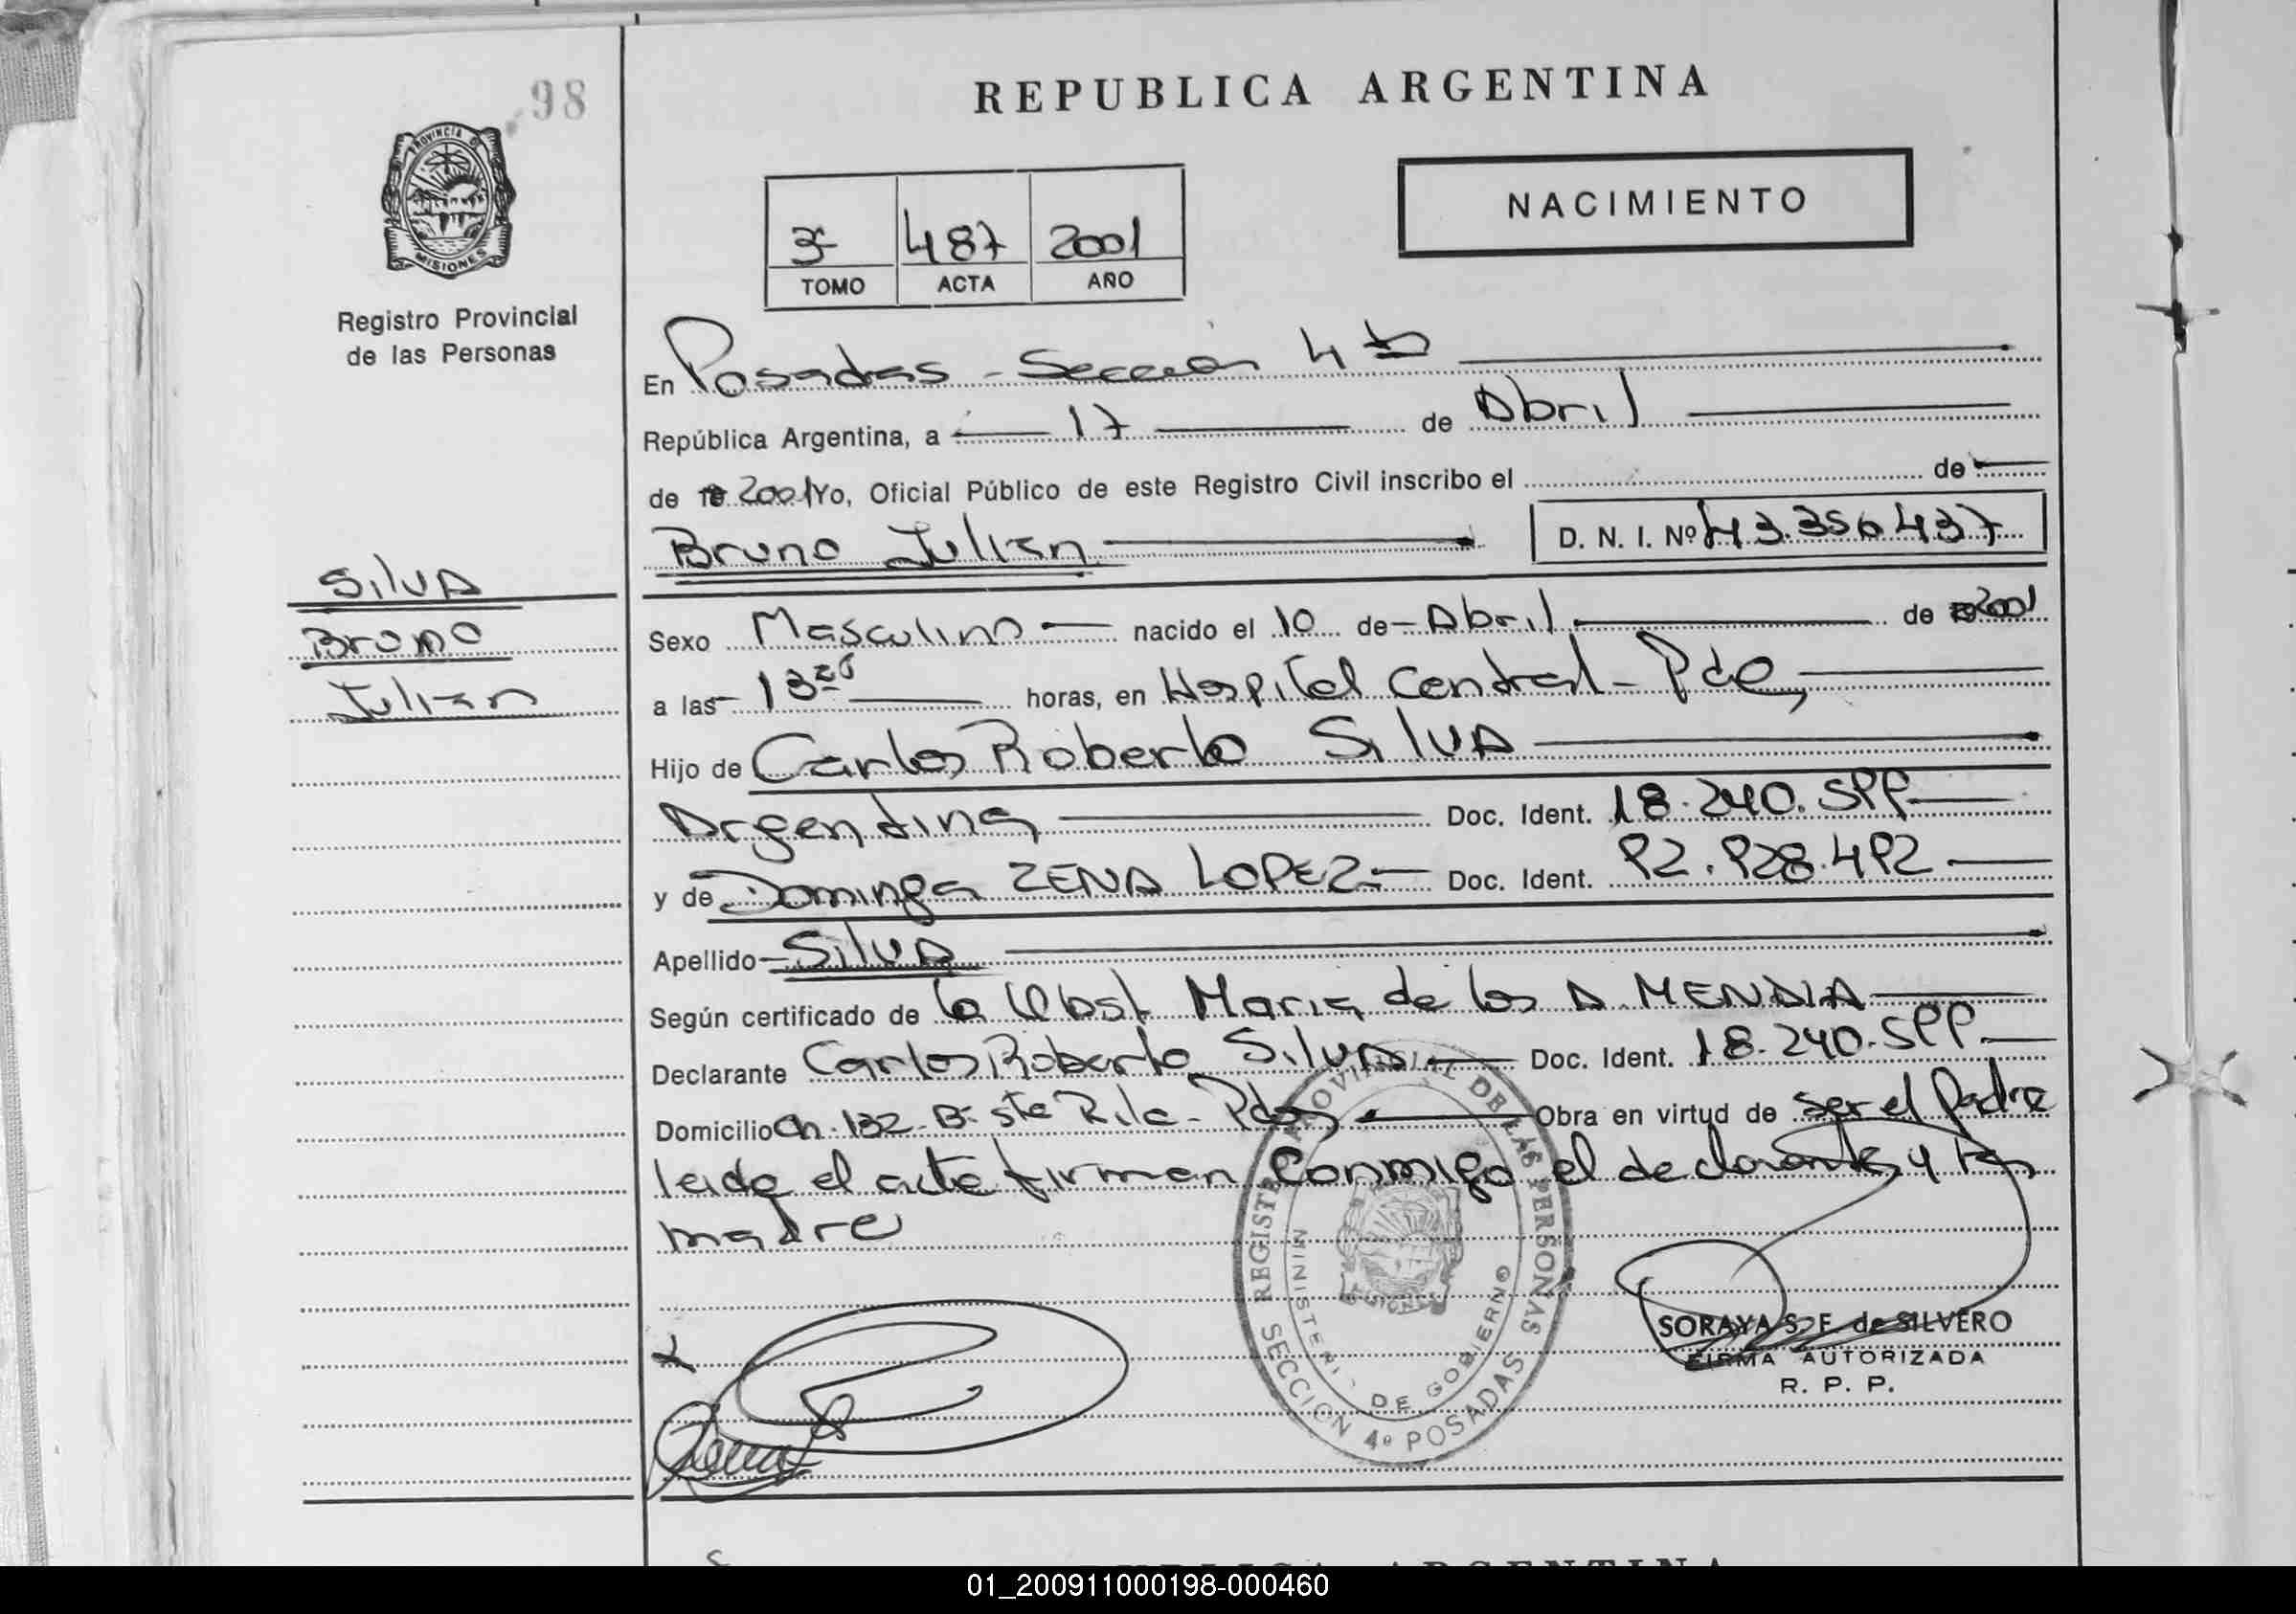 98
REPUBLICA ARGENTINA
PROVINCIA DE
MISIONES
Registro Provincial
de las Personas
NACIMIENTO
3º 487 2001
TOMO ACTA AÑO
En Posadas - Sección 4ta
República Argentina, a 17 de Abril
de 2001 Yo, Oficial Público de este Registro Civil inscribo el de
Bruno Julian D. N. I. Nº 43.356.437
SilVA
Bruno
Julian
Sexo Masculino nacido el 10 de Abril de 2001
a las 13 horas, en Hospital Central - Pdas
Hijo de Carlos Roberto SilVA
Argentina Doc. Ident. 18.240.599
y de Dominga ZENA LOPEZ Doc. Ident. 92.928.492
Apellido SilVA
Según certificado de la Obst Maria de los A. MENDIA
Declarante Carlos Roberto SilVA Doc. Ident. 18.240.599
Domicilio Ch. 132 - Bº Sta Rita - Pdas Obra en virtud de ser el Padre
leida el acta firman conmigo el declarante y la
madre
REGISTRO PROVINCIAL DE LAS PERSONAS
MINISTERIO DE GOBIERNO
SECCION 4º POSADAS
SORAYA S. F. de SILVERO
FIRMA AUTORIZADA
R. P. P.
REPUBLICA ARGENTINA
01_200911000198-000460